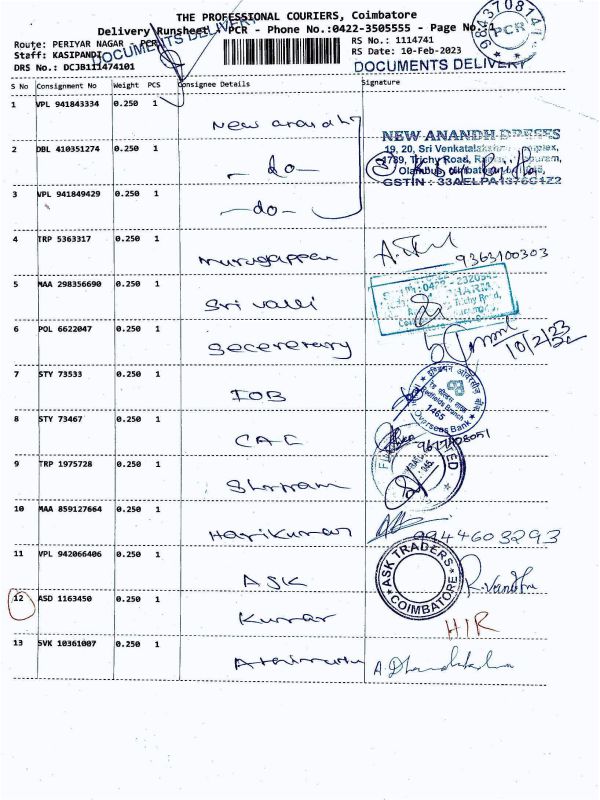 THE PROFESSIONAL COURIERS, Coimbatore
Delivery Runsheet - PCR - Phone No.:0422-3505555 - Page No.:1
Route: PERIYAR NAGAR - PCR
RS No.: 1114741
Staff: KASIPANDI
RS Date: 10-Feb-2023
DRS No.: DCJB111474101
DOCUMENTS DELIVERY
DOCUMENTS DELIVERY
9843708141
PCR
S No Consignment No Weight PCS Consignee Details Signature
1 VPL 941843334 0.250 1
New anandh
2 DBL 410351274 0.250 1
- do -
NEW ANANDH DRESSES
19, 20, Sri Venkatalakshmi Complex,
1789, Trichy Road,
GSTIN : 33AELPA1376C4Z2
3 VPL 941849429 0.250 1
- do -
4 TRP 5363317 0.250 1
murugappan
9363100303
5 MAA 298356690 0.250 1
Sri valli
Trichy Road,
6 POL 6622047 0.250 1
Secererary
10/2/23
7 STY 73533 0.250 1
IOB
Overseas Bank
1465
8 STY 73467 0.250 1
CAC
9 TRP 1975728 0.250 1
Shriram
10 MAA 859127664 0.250 1
Harikumar
9944603293
11 VPL 942066406 0.250 1
ASK
ASK TRADERS
COIMBATORE
12 ASD 1163450 0.250 1
Kumar
HIR
13 SVK 10361007 0.250 1